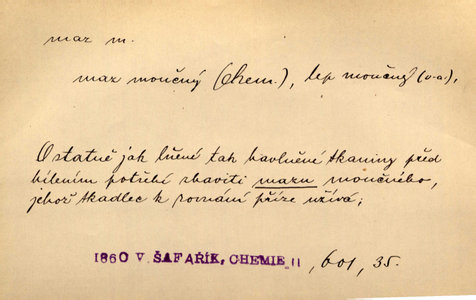 maz m.
maz moučný (Chem.), lep moučný (v-a.),
Ostatně jak lněné tak bavlněné tkaniny před
bílením potřebí zbaviti mazu moučného,
jehož tkadlec k rovnání příze užívá;
1860 V. ŠAFAŘÍK, CHEMIE II , 601, 35.